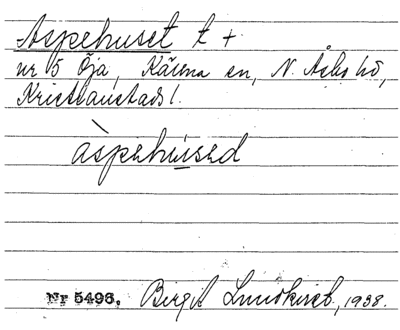 Aspehuset t +
nr 5 Öja, Kärna sn, N. Åsbo hd,
Kristianstads l.
àspehùsed
Nr 5496. Birgit Lundkvist, 1938.